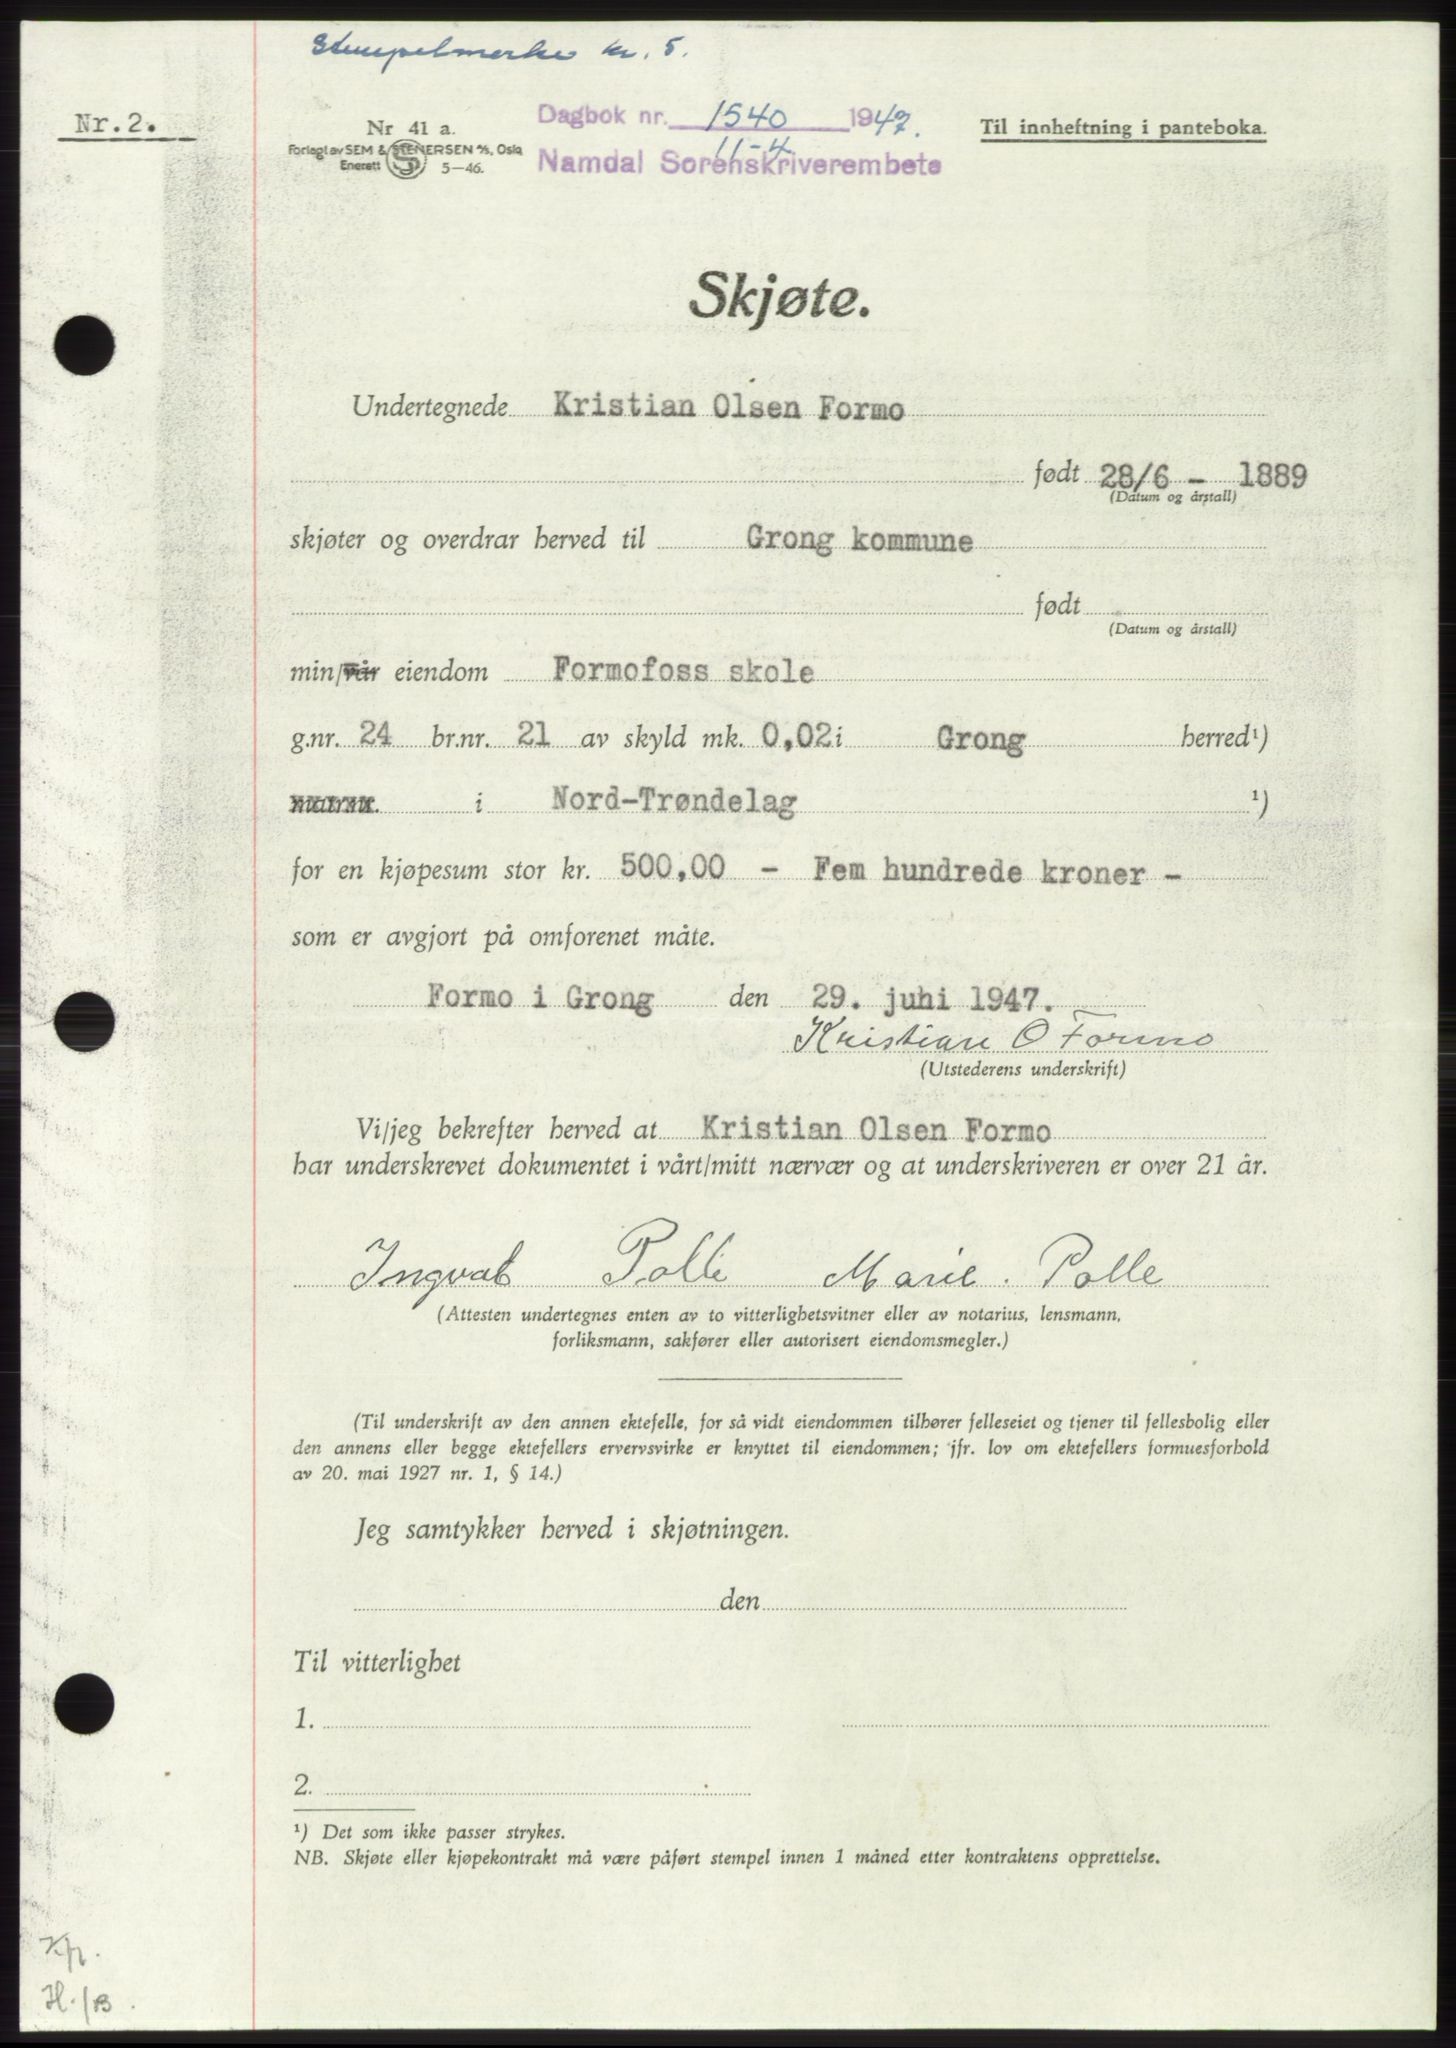 Stempelmerke kr. 5.
Nr.2.
Nr 41 a.
Forlagt av SEM & STENERSEN A/S, Oslo
Enerett 5—46.
Dagbok nr. 1540 1947.
11-4
Namdal Sorenskriverembete
Til innheftning i panteboka.
Skjøte.
Undertegnede Kristian Olsen Formo
født 28/6 - 1889
(Datum og årstall)
skjøter og overdrar herved til Grong kommune
født
(Datum og årstall)
min/vår eiendom Formofoss skole
g.nr. 24 br.nr. 21 av skyld mk. 0,02 i Grong herred¹)
i Nord-Trøndelag ¹)
for en kjøpesum stor kr. 500,00 - Fem hundrede kroner -
som er avgjort på omforenet måte.
Formo i Grong den 29. juni 1947.
Kristian O Formo
(Utstederens underskrift)
Vi/jeg bekrefter herved at Kristian Olsen Formo
har underskrevet dokumentet i vårt/mitt nærvær og at underskriveren er over 21 år.
Ingval Marie
(Attesten undertegnes enten av to vitterlighetsvitner eller av notarius, lensmann,
forliksmann, sakfører eller autorisert eiendomsmegler.)
(Til underskrift av den annen ektefelle, for så vidt eiendommen tilhører felleseiet og tjener til fellesbolig eller
den annens eller begge ektefellers ervervsvirke er knyttet til eiendommen; jfr. lov om ektefellers formuesforhold
av 20. mai 1927 nr. 1, § 14.)
Jeg samtykker herved i skjøtningen.
den
Til vitterlighet
1.
2.
¹) Det som ikke passer strykes.
NB. Skjøte eller kjøpekontrakt må være påført stempel innen 1 måned etter kontraktens opprettelse.
H./B.